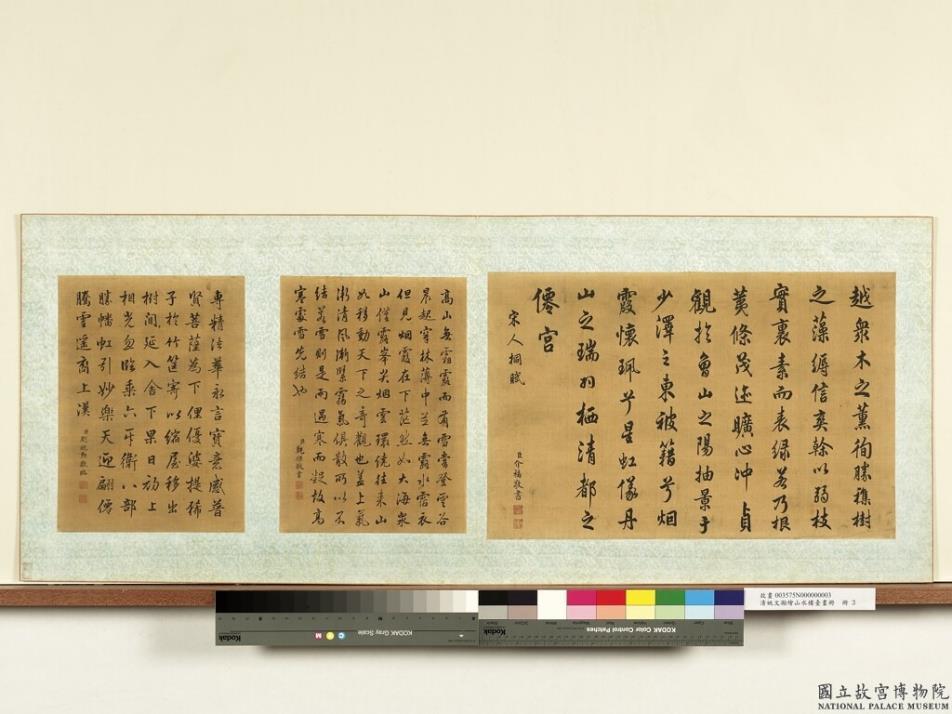 越衆木之薰徇勝穠樹
之藻縟信奕幹以弱枝
實裹素而表綠若乃根
荑條茂迹曠心冲貞
觀於魯山之陽抽景于
少澤之東被籍兮烟
霞懷珮兮星虹儀丹
山之瑞羽栖清都之
僊宮
宋人桐賦
臣介福敬書
高山無霜露而有雪嘗登雲谷
晨起穿林薄中並無露水霑衣
但見烟霞在下茫然如大海衆
山僅露峯尖烟雲環繞往來山
如移動天下之奇觀也蓋上氣
漸清風漸緊霧氣俱散所以不
結若雪則是雨遇寒而凝故高
寒處雪先結也
專精法華永言寶意感普
賢菩薩為下俚優婆提稀
子於竹筐寄以縮屋移出
樹間延入舍下果日初上
相光忽臨乘六牙衛八部
縢幡虹引妙樂天迎翩僊
騰雲遥裔上漢
故畫 003575N000000003
清姚文瀚繪山水樓臺畫冊 冊 3
KODAK Gray Scale
KODAK Color Control Patches
Kodak
Kodak
國立故宮博物院
NATIONAL PALACE MUSEUM